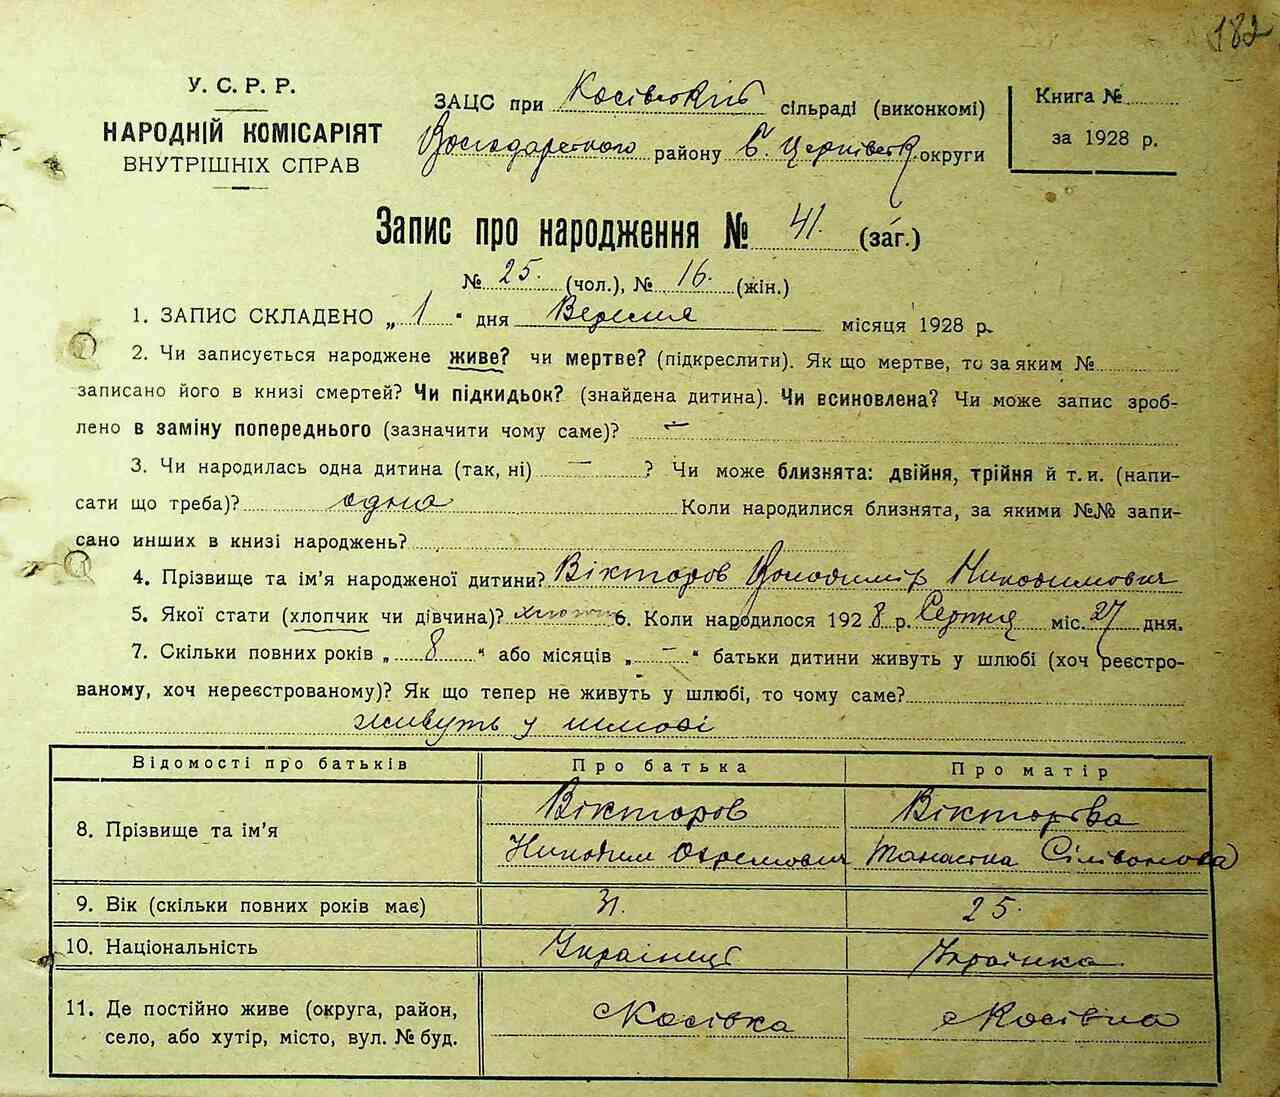 182
У. С. Р. Р.
НАРОДНІЙ КОМІСАРІЯТ
ВНУТРІШНІХ СПРАВ
ЗАЦС при Косівській сільраді (виконкомі)
Володарського району Б. Церківськ. округи
Книга №
за 1928 р.
Запис про народження № 41. (заг.)
№ 25. (чол.), № 16. (жін.)
1. ЗАПИС СКЛАДЕНО „ 1 “ дня Вересня місяця 1928 р.
2. Чи записується народжене живе? чи мертве? (підкреслити). Як що мертве, то за яким №
записано його в книзі смертей? Чи підкидьок? (знайдена дитина). Чи всиновлена? Чи може запис зроб-
лено в заміну попереднього (зазначити чому саме)? —
3. Чи народилась одна дитина (так, ні) — ? Чи може близнята: двійня, трійня й т. и. (напи-
сати що треба)? одна Коли народилися близнята, за якими №№ запи-
сано инших в книзі народжень?
4. Прізвище та ім'я народженої дитини? Вікторов Володимір Никодимович
5. Якої стати (хлопчик чи дівчина)? хлопчик 6. Коли народилося 1928 р. Серпня міс. 27 дня.
7. Скільки повних років „ 8 “ або місяців „ — “ батьки дитини живуть у шлюбі (хоч реєстро-
ваному, хоч нереєстрованому)? Як що тепер не живуть у шлюбі, то чому саме?
живуть у шлюбі
Відомості про батьків Про батька Про матір
8. Прізвище та ім'я Вікторов Никодим Охремович Вікторова Танаска Сілівонова
9. Вік (скільки повних років має) 31. 25.
10. Національність Українець Українка
11. Де постійно живе (округа, район,
село, або хутір, місто, вул. № буд. Косівка Косівка